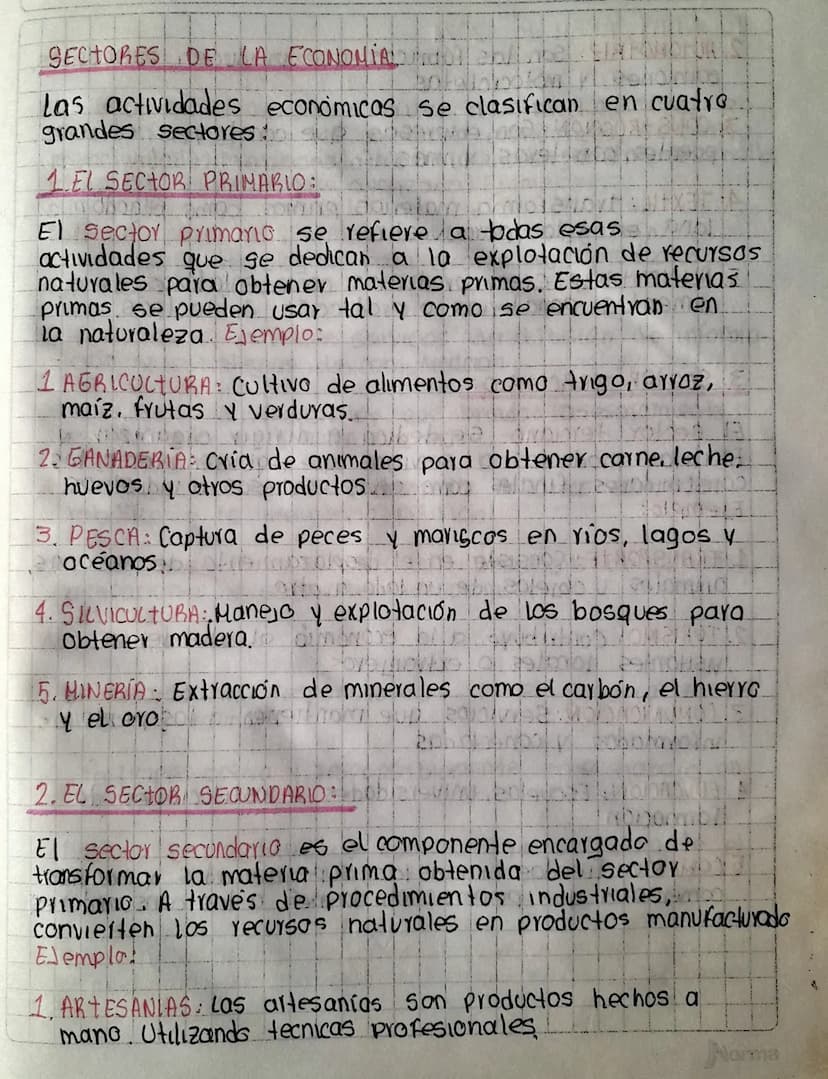 SECTORES DE LA ECONOMÍA:
Las actividades económicas se clasifican en cuatro
grandes sectores:
1. El SECTOR PRIMARIO:
El sector primario se refiere a todas esas
actividades que se dedican a la explotación de recursos
naturales para obtener materias primas. Estas materias
primas se pueden usar tal y como se encuentran en
la naturaleza. Ejemplo:
1 AGRICULTURA: Cultivo de alimentos como trigo, arroz,
maíz, frutas y verduras.
2. GANADERÍA: Cría de animales para obtener carne, leche,
huevos y otros productos.
3. PESCA: Captura de peces y mariscos en ríos, lagos y
océanos.
4. SILVICULTURA: Manejo y explotación de los bosques para
obtener madera.
5. MINERÍA: Extracción de minerales como el carbón, el hierro
y el oro.
2. EL SECTOR SECUNDARIO:
El sector secundario es el componente encargado de
transformar la materia prima obtenida del sector
primario. A través de procedimientos industriales,
convierten los recursos naturales en productos manufacturado
Ejemplo:
1. ARTESANÍAS: Las artesanías son productos hechos a
mano. Utilizando tecnicas profesionales
Norma